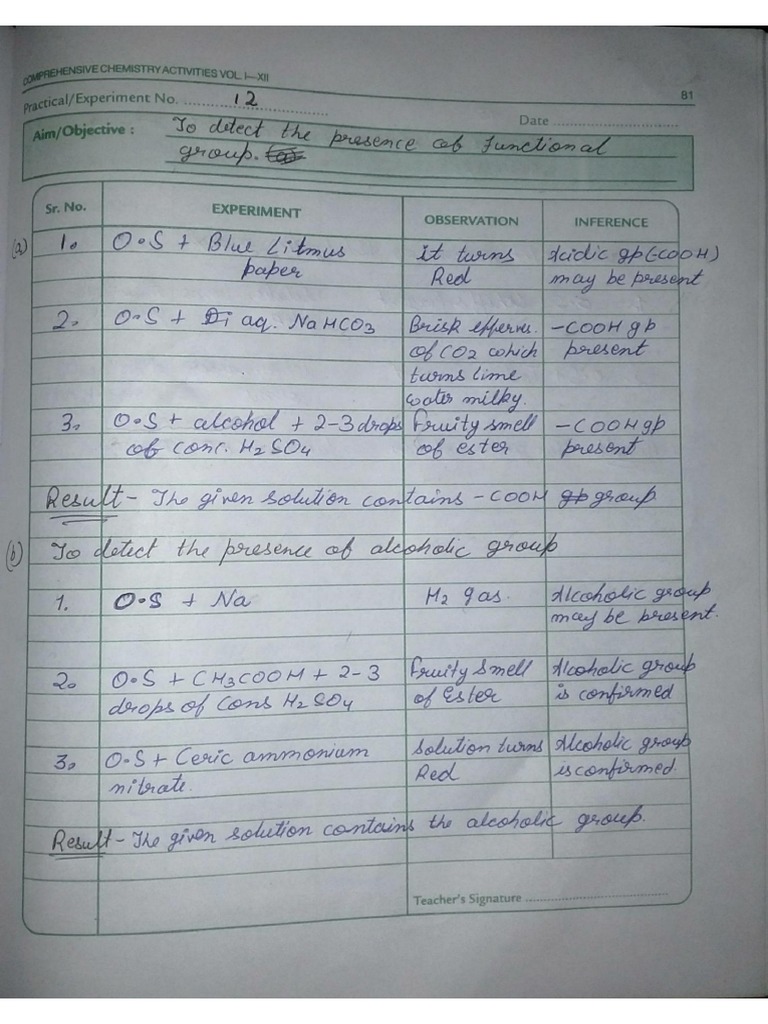 COMPREHENSIVE CHEMISTRY ACTIVITIES VOL. I—XII
81
Practical/Experiment No. 12
Date
Aim/Objective : To detect the presence of functional
group.
Sr. No. EXPERIMENT OBSERVATION INFERENCE
(a) 1. O.S + Blue Litmus it turns Acidic gp (-COOH)
paper Red may be present
2. O.S + aq. NaHCO3 Brisk efferves. -COOH gp
of CO2 which present
turns lime
water milky.
3. O.S + alcohol + 2-3 drops fruity smell -COOH gp
of conc. H2SO4 of ester present
Result - The given solution contains -COOH group
(b) To detect the presence of alcoholic group
1. O.S + Na H2 gas. Alcoholic group
may be present.
2. O.S + CH3COOH + 2-3 fruity smell Alcoholic group
drops of cons H2SO4 of Ester is confirmed
3. O.S + Ceric ammonium solution turns Alcoholic group
nitrate. Red is confirmed.
Result - The given solution contains the alcoholic group.
Teacher's Signature